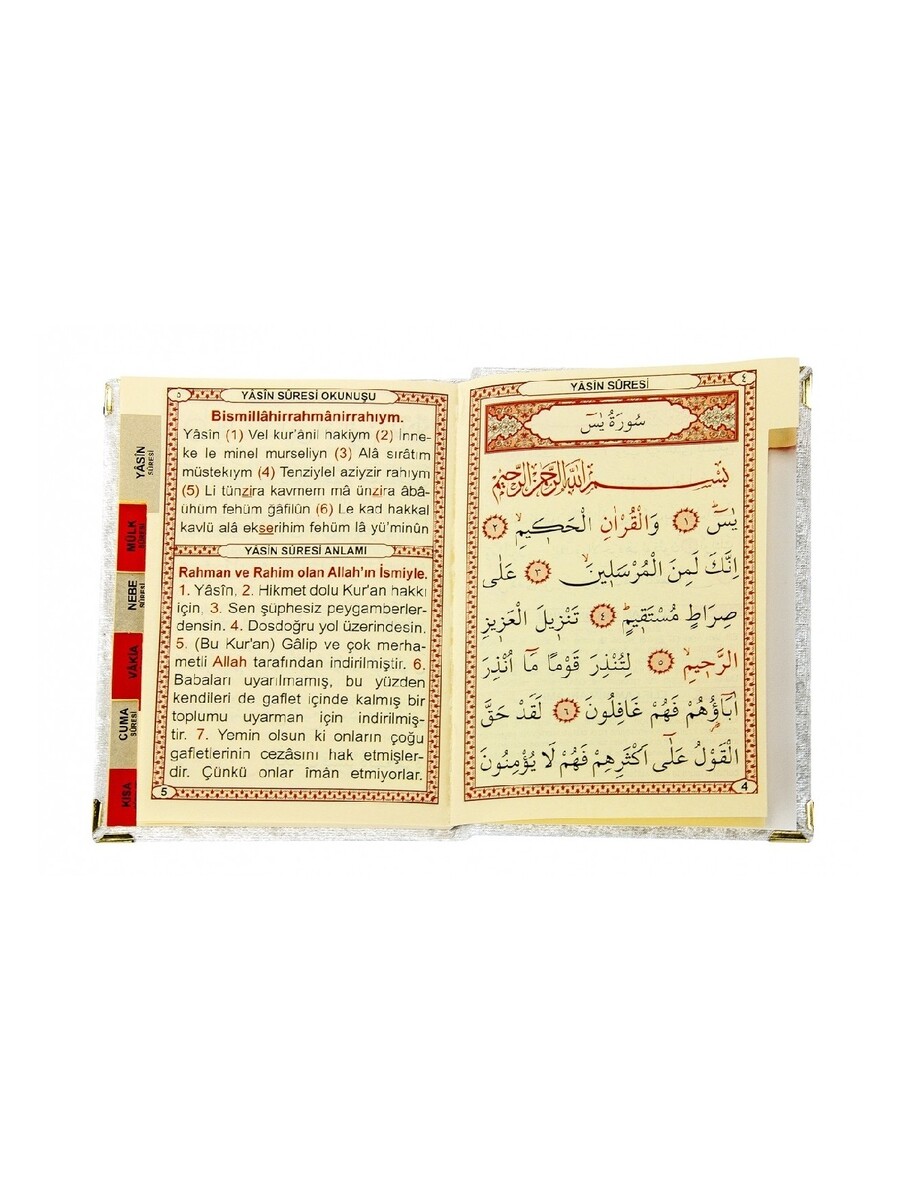 YÂSİN
SÛRESİ
MÜLK
SÛRESİ
NEBE
SÛRESİ
VÂKIA
CUMA
SÛRESİ
KISA
٥
YÂSÎN SÛRESİ OKUNUŞU
Bismillâhirrahmânirrahıym.
Yâsîn (1) Vel kur'ânil hakiym (2) İnne-
ke le minel murseliyn (3) Alâ sırâtım
müstekıym (4) Tenziylel aziyzir rahıym
(5) Li tünzira kavmem mâ ünzira âbâ-
uhüm fehüm ğâfilûn (6) Le kad hakkal
kavlü alâ ekserihim fehüm lâ yü'minûn
YÂSİN SÛRESİ ANLAMI
Rahman ve Rahim olan Allah'ın İsmiyle.
1. Yâsîn, 2. Hikmet dolu Kur'an hakkı
için, 3. Sen şüphesiz peygamberler-
densin. 4. Dosdoğru yol üzerindesin.
5. (Bu Kur'an) Gâlip ve çok merha-
metli Allah tarafından indirilmiştir. 6.
Babaları uyarılmamış, bu yüzden
kendileri de gaflet içinde kalmış bir
toplumu uyarman için indirilmiş-
tir. 7. Yemin olsun ki onların çoğu
gafletlerinin cezâsını hak etmişler-
dir. Çünkü onlar îmân etmiyorlar.
5
YÂSİN SÛRESİ
٤
سُورَةُ يٰسٓ
بِسْمِ اللّٰهِ الرَّحْمٰنِ الرَّحِيمِ
يٰسٓۜ ﴿١﴾ وَالْقُرْاٰنِ الْحَك۪يمِۙ ﴿٢﴾
اِنَّكَ لَمِنَ الْمُرْسَل۪ينَۙ ﴿٣﴾ عَلٰى
صِرَاطٍ مُسْتَق۪يمٍۜ ﴿٤﴾ تَنْز۪يلَ الْعَز۪يزِ
الرَّح۪يمِۙ ﴿٥﴾ لِتُنْذِرَ قَوْمًا مَٓا اُنْذِرَ
اٰبَٓاؤُهُمْ فَهُمْ غَافِلُونَ ﴿٦﴾ لَقَدْ حَقَّ
الْقَوْلُ عَلٰٓى اَكْثَرِهِمْ فَهُمْ لَا يُؤْمِنُونَ
4